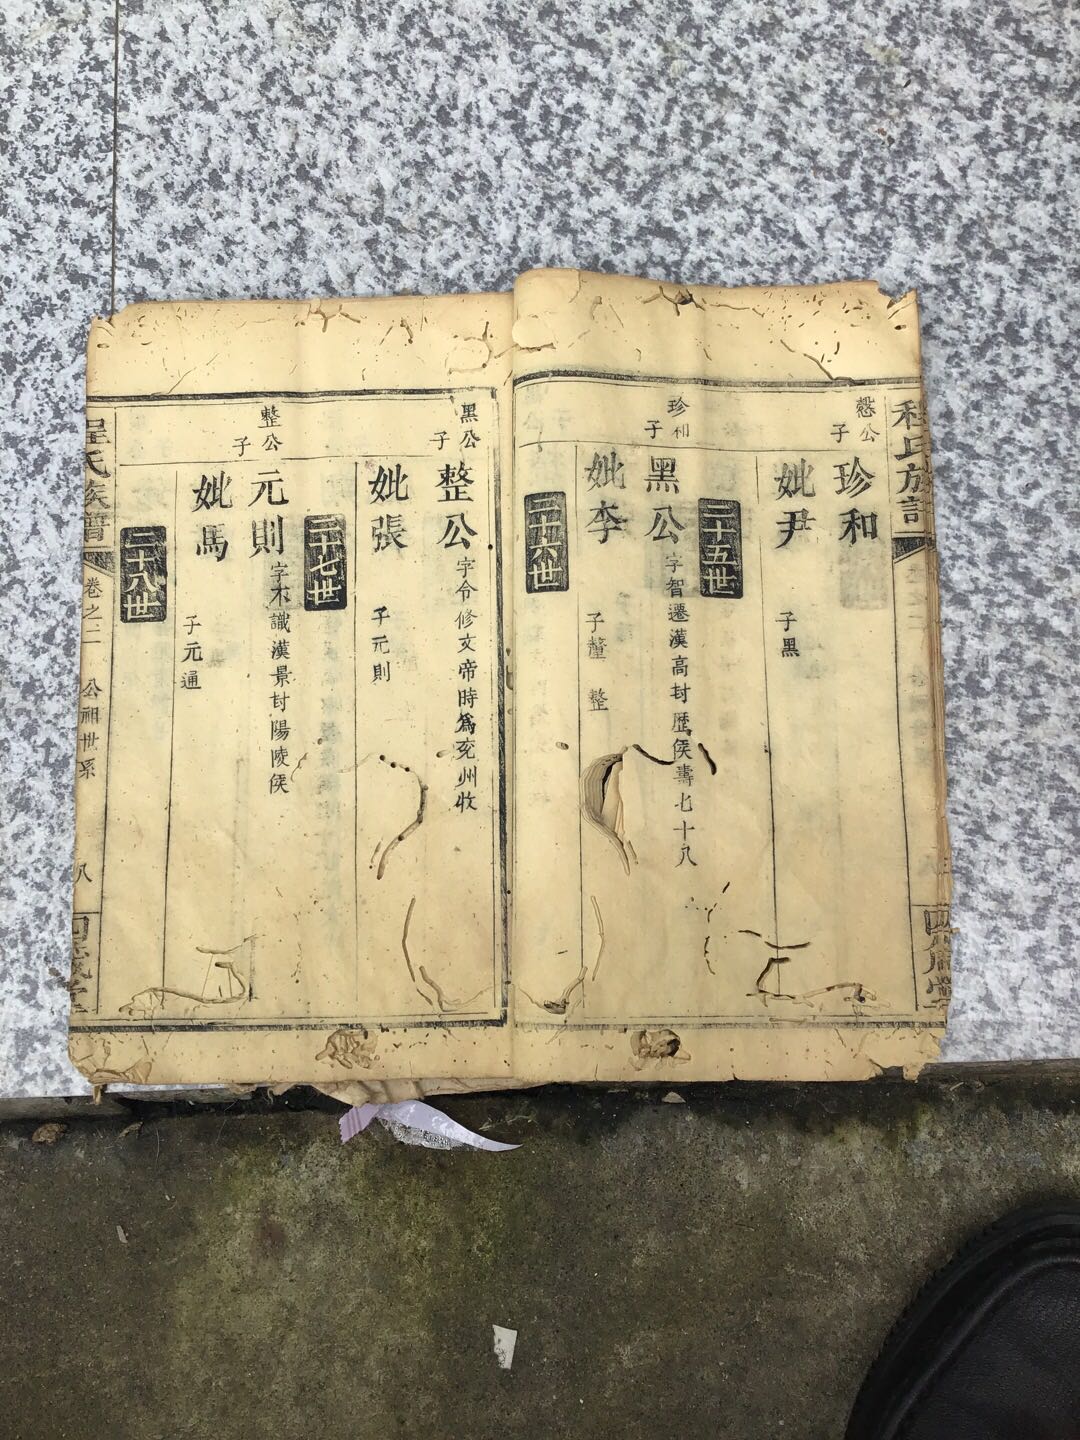 程氏族譜
慇公
子
珍和
妣尹
子黑
二十五世
珍和
子
黑公
字智遷漢高封歷侯壽七十八
妣李
子釐 整
二十六世
黑公
子
整公
字令修文帝時爲兖州收
妣張
子元則
二十七世
整公
子
元則
字不識漢景封陽陵侯
妣馬
子元通
二十八世
程氏族譜
卷之二
公祖世系
八